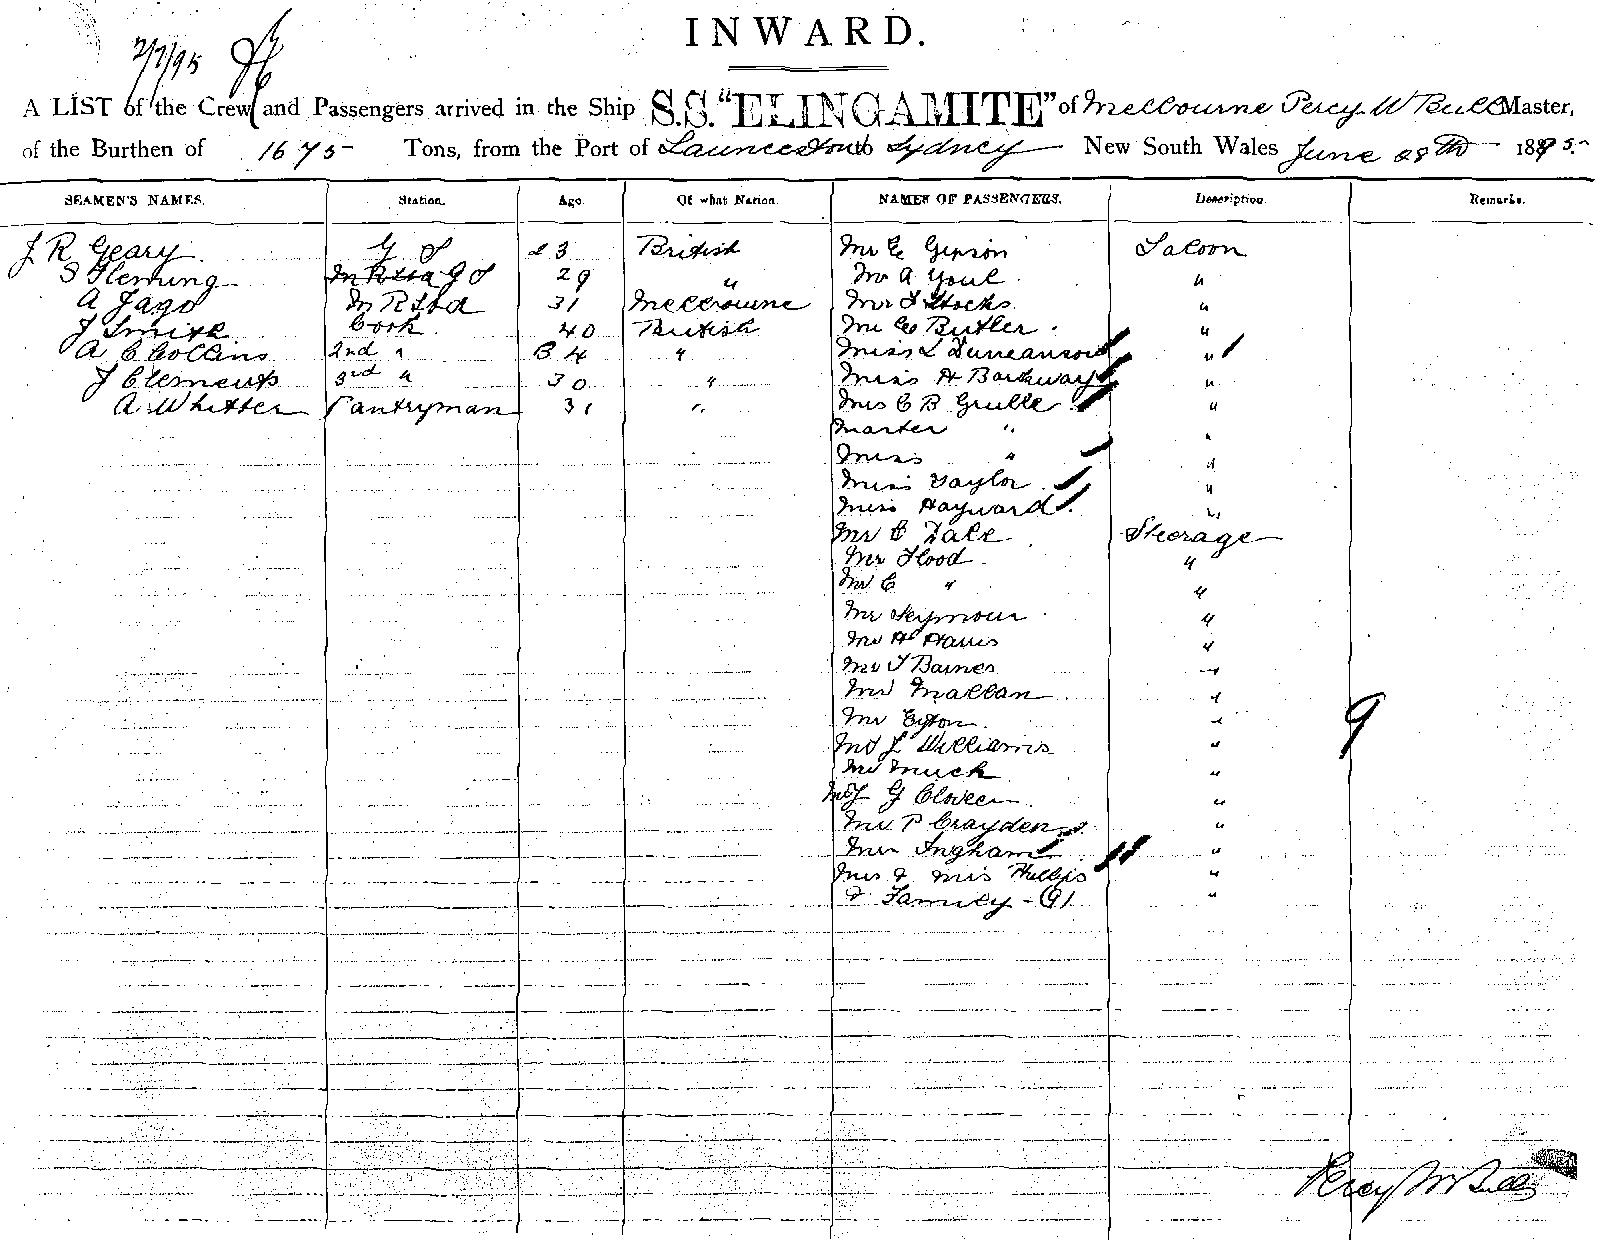 INWARD.
2/7/95
A LIST of the Crew and Passengers arrived in the Ship S.S. "ELINGAMITE" of Melbourne Percy W Bull Master,
of the Burthen of 1675 Tons, from the Port of Launceston to Sydney New South Wales June 28th 1895.
SEAMEN'S NAMES. Station. Age. Of what Nation. NAMES OF PASSENGERS. Description. Remarks.
J R Geary G S 23 British Mr E Gipson Saloon
S Fleming G S 29 " Mr A Youl "
A Jago M R Std 31 Melbourne Mr F Stocks "
J Smith Cook 40 British Mr Geo Butler "
A C Collins 2nd " 34 " Miss L Duncanson "
J Clements 3rd " 30 " Miss H Barkway "
A Whitter Pantryman 31 " Mrs C B Grubb "
Master " "
Miss " "
Miss Taylor "
Miss Hayward "
Mr C Dale Steerage
Mr Flood "
Mr C " "
Mr Seymour "
Mr H Harris "
Mr T Barnes "
Mr Mallan "
Mr "
Mr L Williams "
Mr Muck "
G "
Mr P Crayden "
Mrs Ingham "
Mr & Mrs Phillips "
& Family - (9) "
9
Percy W Bull